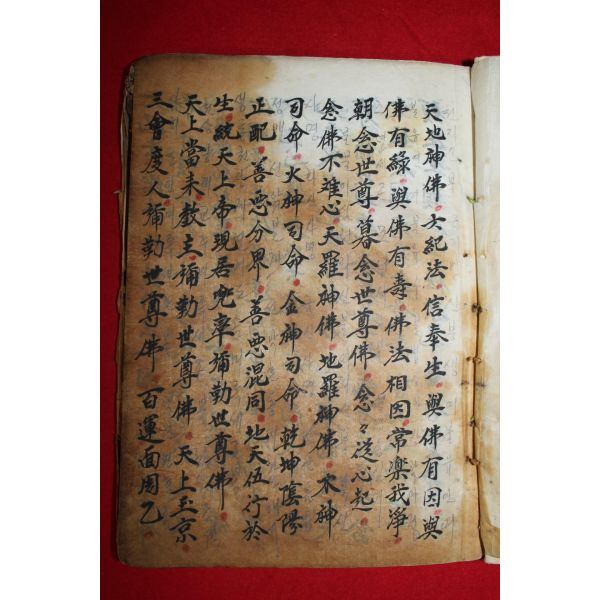 天地神佛 大紀法 信奉生 與佛有因與
佛有緣 與佛有壽 佛法相因 常樂我淨
朝念世尊 暮念世尊佛 念々從心起
念佛不離心 天羅神佛 地羅神佛 水神
司命 火神司命 金神司命 乾坤陰陽
正配 善惡分界 善惡混同 地天伍行於
生統天上帝 現居兜率 彌勒世尊佛
天上當未教主 彌勒世尊佛 天上玉京
三會度人 彌勒世尊佛 百運面周乙